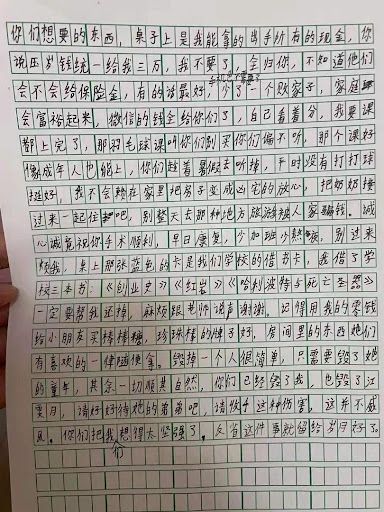 你们想要的东西，桌子上是我能拿的出手所有的现金，你
手机也不需要了
说压岁钱统一给我三万，我不要了，全归你，不知道他们
会不会给保险金，有的话最好，少了一个败家子，家庭
会富裕起来，微信的钱全给你们了，自己看着分，我要课
都上完了，那羽毛球课听你们别买你们偏不听，那个课好
像成年人也能上，你们趁着暑假去听掉，平时没有打打球
挺好，我不会赖在家里把房子变成凶宅的放心，把奶奶接
过来一起住吧，别整天去那种地方旅游被人家骗钱。诚
心诚意祝你手术顺利，早日康复，少加班少熬夜，别过来
烦我，桌上那张蓝色的卡是我们学校的借书卡，我借了学
校三本书：《创业史》《红岩》《哈利波特与死亡圣器》
一定要帮我还掉，麻烦跟老师说声谢谢。记得用我的零钱
给小朋友买棒棒糖，珍珠棒的牌子好，房间里的东西她们
有喜欢的一律随便拿。毁掉一个人很简单，只需要毁了她
的童年，其余一切顺其自然，你们已经毁了我，也毁了江
月，请好好待她的弟弟吧，请收手这种伤害，这并不威
风。你们把我们想得太坚强了。反省这件事就留给岁月好了。